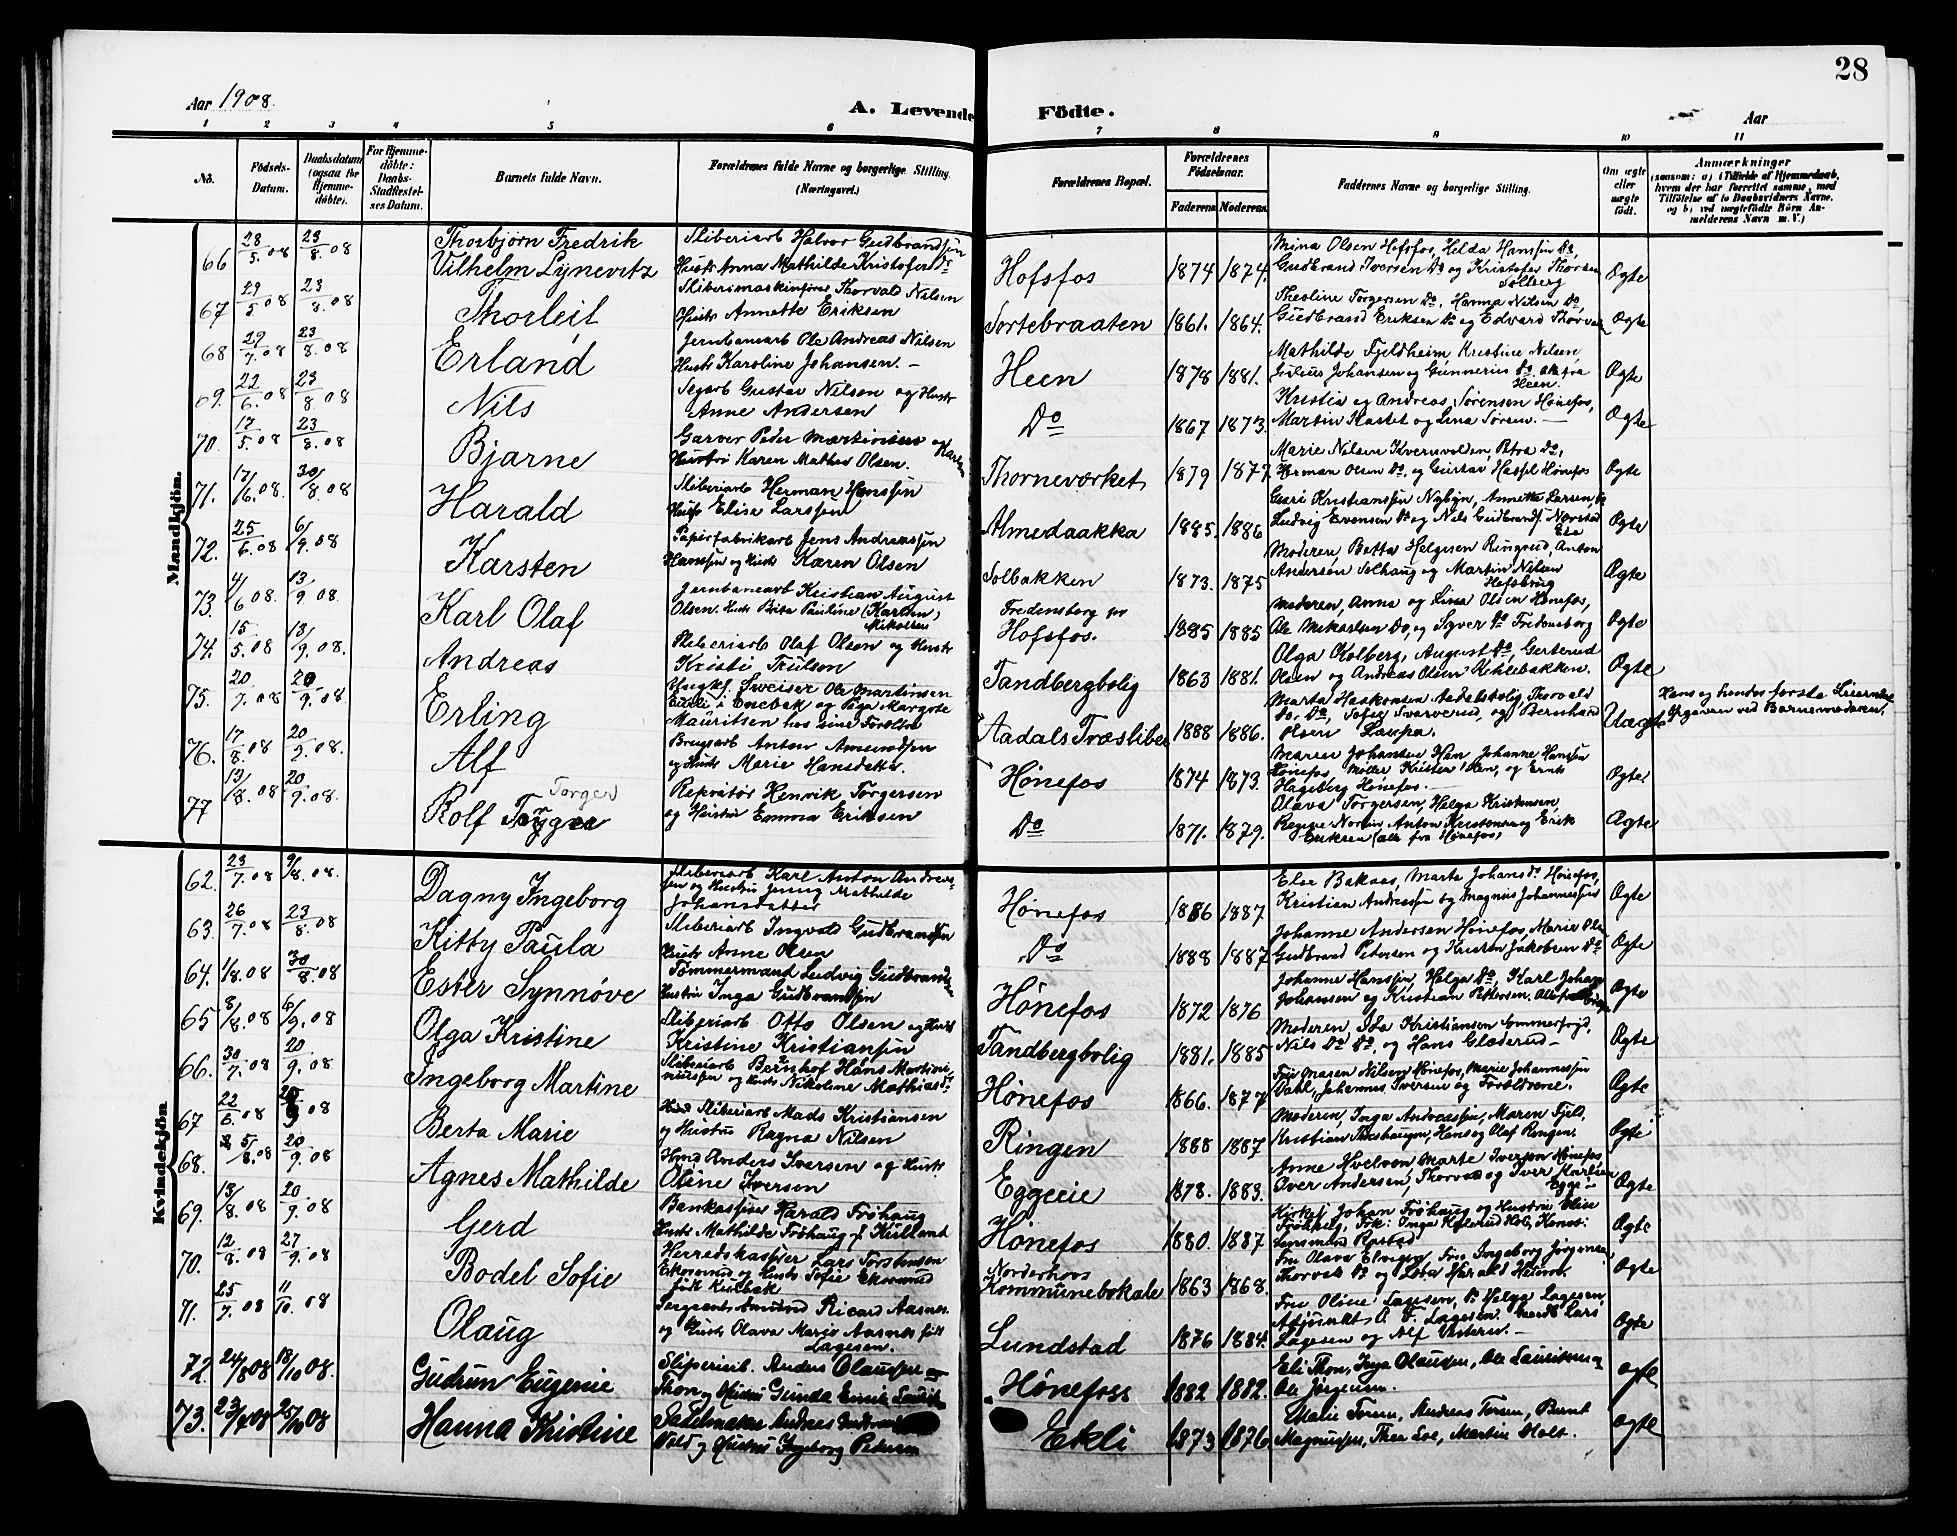 28
Aar 1908.
A. Levende Födte.
Aar
1 2 3 4 5 6 7 8 9 10 11
No. Födsels-Datum. Daabsdatum (ogsaa for Hjemme-döbte). For Hjemme-döbte: Daabs-Stadfæstel-ses Datum. Barnets fulde Navn. Forældrenes fulde Navne og borgerlige Stilling. (Næringsvei.) Forældrenes Bopæl. Forældrenes Födselsaar. Faderens Moderens. Faddernes Navne og borgerlige Stilling. Om ægte eller uægte födt. Anmærkninger
(saasom: a) i Tilfælde af Hjemmedaab, hvem der har forrettet samme, med Tilföielse af to Daabsvidners Navne, og b) ved uægtefödte Börn An-melderens Navn m. V.)
Mandkjön.
66 28/5.08 23/8.08 Thorbjørn Fredrik Vilhelm Lynevitz Sliberiarb Halvor Gudbrandsen Hustr Anna Mathilde Kristofer Do Hofsfos 1874 1874. Mina Olsen Hofsfos, Helda Hanssen Do, Gudbrand Iversen Do og Kristofer Thorsen Solberg Ægte
67 29/5 08 23/8.08 Thorleif Slibersmaskinfører Thorvald Nilsen Hustr Annette Eriksen Sortebraaten 1861. 1864. Theoline Torgersen Do, Hanna Nilsen Do, Gudbrand Eriksen Do og Edvard Thorvals Ægte
68 29/7.08 23/8.08 Erland Jernbanearb Ole Andreas Nilsen Hustr Karoline Johansen. Heen 1878 1881. Mathilde Fjeldheim, Kristine Nilsen, Julius Johansen og Gunnerius Do alle fra Heen. Ægte
69. 22/6.08 23/8 08 Nils Sagarb Gustav Nilsen og Hustr Anne Andersen Do 1867 1873. Kristia og Andreas Sørensen Hønefos, Martin Kastet og Lina Søren. Ægte
70. 17/5.08 23/8.08 Bjarne Garver Peder Martinisen og Hustru Karen Mathea Olsen. Karlsen Thorneværket 1879 1877 Marie Nilsen Kvernvolden, Petra Do, Herman Olsen Do, og Gustav Hassel Hønefos Ægte
71. 17/6.08 30/8.08 Harald Sliberiarb Herman Hanssen Hustr Elise Larssen Almedaakka 1885. 1886 Guri Kristianssen Nybyn, Annette Larsen, Ludvig Evensen Do og Nils Gudbrandf. Nærstad Ægte
72. 25/6.08 6/9.08 Karsten Papirfabrikarb Jens Andreassen Hanssen og Hustr Karen Olsen Solbakken 1873. 1875 Moderen, Betta Helgesen Ringerud, Anton Andersen Solhaug og Martin Nilsen Hofsbrug Ægte
73. 4/6 08. 13/9 08. Karl Olaf Jernbanearb Kristian August Olsen. Hustr Brita Pauline (Karlsen) Mikalsen Fredensborg pr Hofsfos. 1885 1885 Moderen, Anna og Lina Olsen Hønefos, Ole Mikarlsen Do, og Syver Do Fredensborg Ægte
74. 15/5.08 13/9.08. Andreas Sliberiarb Olaf Olsen og Hustr Kristi Trulsen Tandbergbolig 1863 1881. Olga Kolberg, August Do, Gerterud Olsen og Andreas Olsen Kihlebakken. Ægte
75. 20/7.08 20/9.08 Erling Ungkf. Sveiser Ole Martinsen i Enebak og Pige Margrete Mauritsen hos sine Forældre Aadals Træsliberi 1888 1886. Marta Haakonsen Aadalsbolig, Thorvald Do, Do, Sofie Svarverud, og Bernhard Olsen Uægte Hans og hendes første Leiermaal Opgaven ved Barnemoderen.
76. 17/8.08 20/9.08. Alf Brugsarb Anton Amundsen og Hustr Marie Hansdatter. Hønefos 1874 1873. Maren Johansen Hen, Johanne Hanssen Hønefos, Møller Krister Hen, og Ernst Hageberg Hønefos. Ægte
77 19/8.08 20/9.08. Rolf Torger Reparatør Henrik Torgersen og Hustru Emma Eriksen Do 1871. 1879. Olava Torgersen, Helga Kristensen, Anton Kristensen og Erik Eriksen (alle fra Hønefos) Ægte
Kvindekjön
62. 23/7.08 9/8.08. Dagny Ingeborg Sliberiarb Karl Anton Andreas-sen og Hustru Jenny Mathilde Johansdatter Hønefos 1886 1887 Else Bakaas, Marta Johansd. Hønefos, Kristian Andreassen og Magnus Johannessen Ægte
63. 26/7.08 23/8.08 Kitty Paula Sliberiarb Ingvald Gudbrandsen Hustr Anne Olsen Do 1888 1887 Johanne Andersen Hønefos, Marie Olsen Gudbrand Petersen og Kristen Jakobsen Do Ægte
64. 1/8.08 30/8.08 Ester Synnøve Tømmermand Ludvig Gudbrandsen Hustru Inga Gudbrandsen Hønefos 1872 1876 Johanne Hanssen, Helga Do, Karl Johan Johansen og Kristian Pettersen. Ægte
65 8/8.08 6/9.08 Olga Kristine Sliberiarb Otto Olsen og Hust Kristine Kristiansen Tandbergbolig 1881. 1885 Moderen, Ida Kristiansen Sommerfryd, Nils Do Do, og Hans Glæderud Ægte
66. 30/7.08 20/9.08 Ingeborg Martine Sliberiarb Bernhof Hans Martini-niussen og Hustr Nikoline Mathiasd. Hønefos 1866. 1877 Fru Maren Nilsen Hønefos, Marie Johannessen Dahl, Johannes Iversen og Forældrene. Ægte
67 22/6.08 20/9 08 Berta Marie Sliberiarb Mads Kristiansen og Hustru Ragna Nilsen Ringen 1888 1887 Moderen, Inga Andreassen, Maren Fjeld, Kristian Thoshaugen, Hans og Olaf Ringen. Ægte
68. 5/8.08 20/9.08 Agnes Mathilde Hmd Anders Iversen og Hustr Oline Iversen Eggeeie 1878. 1883. Anne Hvelven, Marte Iversen Hønefos Iver Andersen, Thorvald og Iver Karlsen Egge Ægte
69. 13/8.08 20/9.08 Gerd Bankassjerer Harald Frøhaug Hustr Mathilde Frøhaug f. Kielland Hønefos 1880. 1887. Kirkef. Johan Frøhaug og Hustru Elise Frøhaug, Frk: Inga Hol, Konst: Lensmand Rostad Ægte
70. 12/8.08 27/9.08 Bodel Sofie Herredskasserer Lars Torstensen Ekornrud og Hustr Sofie Ekornrud født Kulbek Norderhovs Kommunelokale 1863 1868. Fru Olava Elvigen, Fru Ingeborg Jørgensen Thorvald Do og Harald Ægte
71. 25/7.08 11/10.08 Olaug Sergeant Amund Ricard Aasnes og Hustr Olava Marie Aasnes født Lagesen. Lundstad 1876 1884. Fru Oline Lagesen, Do Helga Lagesen, Adjunkt O. F. Lagesen, Lars Lagesen og Alf Ægte
72. 24/8 08 18/10 08. Gudrun Eugenie Sliperiarb. Anders Olausen Thon og Hustru Gunda Emilie Lauritsen Hønefoss 1882 1882. Eli Thon, Inga Olausen, Ole Lauritsen og Ole Jørgensen. ægte
73. 23/7 08 25/10 08 Hanna Kristine Sadelmaker Andreas Vold og Hustru Ingeborg Pedersen Ekli 1873 1876 Malie Torsen, Andreas Torsen, Bernt Magnussen, Thea Loe, Martin Holt. ægte